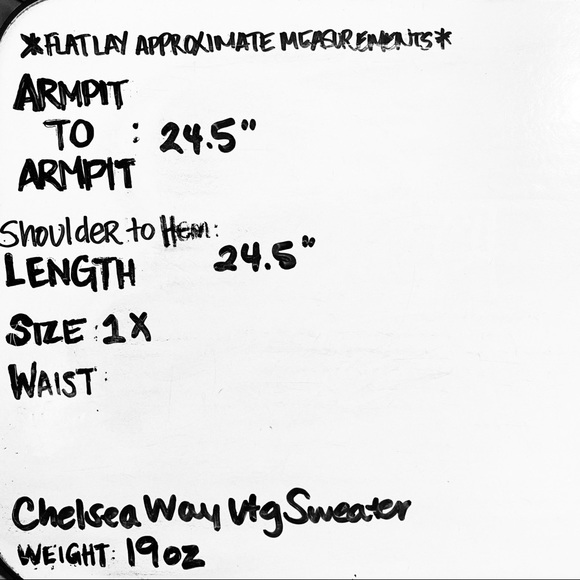 *FLAT LAY APPROXIMATE MEASUREMENTS*
ARMPIT
TO : 24.5"
ARMPIT
Shoulder to Hem:
LENGTH 24.5"
SIZE: 1X
WAIST:
Chelsea Way Vtg Sweater
WEIGHT: 19oz